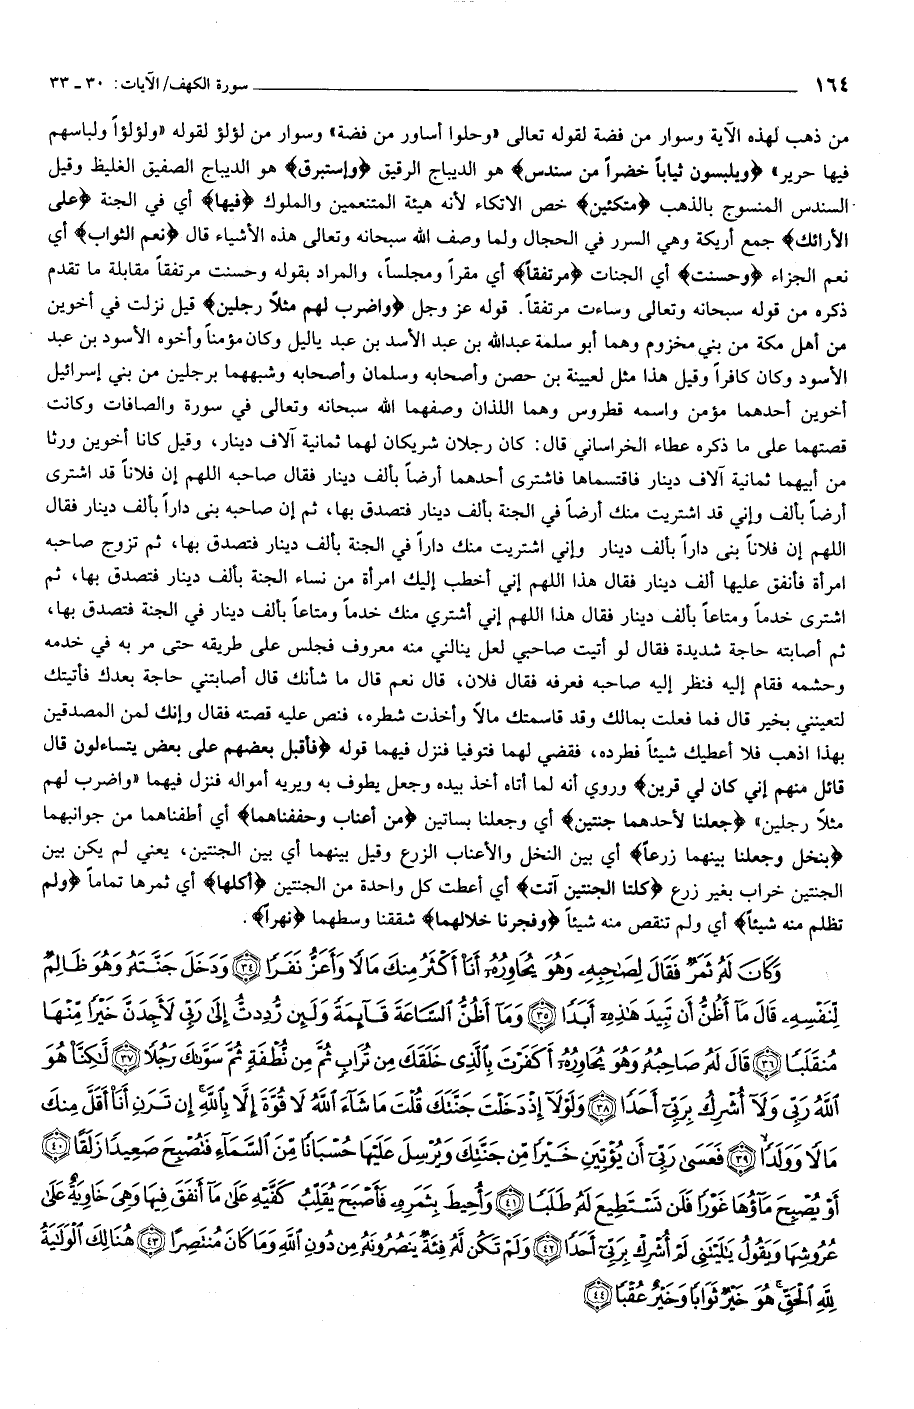 ١٦٤ سورة الكهف/ الآيات: ٣٠ ـ ٣٣
من ذهب لهذه الآية وسوار من فضة لقوله تعالى «وحلوا أساور من فضة» وسوار من لؤلؤ لقوله «ولؤلؤاً ولباسهم
فيها حرير» ﴿ويلبسون ثياباً خضراً من سندس﴾ هو الديباج الرقيق ﴿وإستبرق﴾ هو الديباج الصفيق الغليظ وقيل
السندس المنسوج بالذهب ﴿متكئين﴾ خص الاتكاء لأنه هيئة المتنعمين والملوك ﴿فيها﴾ أي في الجنة ﴿على
الأرائك﴾ جمع أريكة وهي السرر في الحجال ولما وصف الله سبحانه وتعالى هذه الأشياء قال ﴿نعم الثواب﴾ أي
نعم الجزاء ﴿وحسنت﴾ أي الجنات ﴿مرتفقاً﴾ أي مقراً ومجلساً، والمراد بقوله وحسنت مرتفقاً مقابلة ما تقدم
ذكره من قوله سبحانه وتعالى وساءت مرتفقاً. قوله عز وجل ﴿واضرب لهم مثلاً رجلين﴾ قيل نزلت في أخوين
من أهل مكة من بني مخزوم وهما أبو سلمة عبدالله بن عبد الأسد بن عبد ياليل وكان مؤمناً وأخوه الأسود بن عبد
الأسود وكان كافراً وقيل هذا مثل لعيينة بن حصن وأصحابه وسلمان وأصحابه وشبههما برجلين من بني إسرائيل
أخوين أحدهما مؤمن واسمه قطروس وهما اللذان وصفهما الله سبحانه وتعالى في سورة والصافات وكانت
قصتهما على ما ذكره عطاء الخراساني قال: كان رجلان شريكان لهما ثمانية آلاف دينار، وقيل كانا أخوين ورثا
من أبيهما ثمانية آلاف دينار فاقتسماها فاشترى أحدهما أرضاً بألف دينار فقال صاحبه اللهم إن فلاناً قد اشترى
أرضاً بألف وإني قد اشتريت منك أرضاً في الجنة بألف دينار فتصدق بها، ثم إن صاحبه بنى داراً بألف دينار فقال
اللهم إن فلاناً بنى داراً بألف دينار وإني اشتريت منك داراً في الجنة بألف دينار فتصدق بها، ثم تزوج صاحبه
امرأة فأنفق عليها ألف دينار فقال هذا اللهم إني أخطب إليك امرأة من نساء الجنة بألف دينار فتصدق بها، ثم
اشترى خدماً ومتاعاً بألف دينار فقال هذا اللهم إني أشتري منك خدماً ومتاعاً بألف دينار في الجنة فتصدق بها،
ثم أصابته حاجة شديدة فقال لو أتيت صاحبي لعل ينالني منه معروف فجلس على طريقه حتى مر به في خدمه
وحشمه فقام إليه فنظر إليه صاحبه فعرفه فقال فلان، قال نعم قال ما شأنك قال أصابتني حاجة بعدك فأتيتك
لتعينني بخير قال فما فعلت بمالك وقد قاسمتك مالاً وأخذت شطره، فنص عليه قصته فقال وإنك لمن المصدقين
بهذا اذهب فلا أعطيك شيئاً فطرده، فقضي لهما فتوفيا فنزل فيهما قوله ﴿فأقبل بعضهم على بعض يتساءلون قال
قائل منهم إني كان لي قرين﴾ وروي أنه لما أتاه أخذ بيده وجعل يطوف به ويريه أمواله فنزل فيهما «واضرب لهم
مثلاً رجلين» ﴿جعلنا لأحدهما جنتين﴾ أي وجعلنا بساتين ﴿من أعناب وحففناهما﴾ أي أطفناهما من جوانبهما
﴿بنخل وجعلنا بينهما زرعاً﴾ أي بين النخل والأعناب الزرع وقيل بينهما أي بين الجنتين، يعني لم يكن بين
الجنتين خراب بغير زرع ﴿كلتا الجنتين آتت﴾ أي أعطت كل واحدة من الجنتين ﴿أكلها﴾ أي ثمرها تماماً ﴿ولم
تظلم منه شيئاً﴾ أي ولم تنقص منه شيئاً ﴿وفجرنا خلالهما﴾ شققنا وسطهما ﴿نهراً﴾.
وَكَانَ لَهُ ثَمَرٌ فَقَالَ لِصَاحِبِهِ وَهُوَ يُحَاوِرُهُ أَنَا أَكْثَرُ مِنكَ مَالًا وَأَعَزُّ نَفَرًا ﴿٣٤﴾ وَدَخَلَ جَنَّتَهُ وَهُوَ ظَالِمٌ
لِنَفْسِهِ قَالَ مَا أَظُنُّ أَن تَبِيدَ هَذِهِ أَبَدًا ﴿٣٥﴾ وَمَا أَظُنُّ السَّاعَةَ قَائِمَةً وَلَئِن رُّدِدتُّ إِلَى رَبِّي لَأَجِدَنَّ خَيْرًا مِنْهَا
مُنقَلَبًا ﴿٣٦﴾ قَالَ لَهُ صَاحِبُهُ وَهُوَ يُحَاوِرُهُ أَكَفَرْتَ بِالَّذِي خَلَقَكَ مِن تُرَابٍ ثُمَّ مِن نُّطْفَةٍ ثُمَّ سَوَّاكَ رَجُلًا ﴿٣٧﴾ لَّكِنَّا هُوَ
اللَّهُ رَبِّي وَلَا أُشْرِكُ بِرَبِّي أَحَدًا ﴿٣٨﴾ وَلَوْلَا إِذْ دَخَلْتَ جَنَّتَكَ قُلْتَ مَا شَاءَ اللَّهُ لَا قُوَّةَ إِلَّا بِاللَّهِ إِن تَرَنِ أَنَا أَقَلَّ مِنكَ
مَالًا وَوَلَدًا ﴿٣٩﴾ فَعَسَى رَبِّي أَن يُؤْتِيَنِ خَيْرًا مِّن جَنَّتِكَ وَيُرْسِلَ عَلَيْهَا حُسْبَانًا مِّنَ السَّمَاءِ فَتُصْبِحَ صَعِيدًا زَلَقًا ﴿٤٠﴾
أَوْ يُصْبِحَ مَاؤُهَا غَوْرًا فَلَن تَسْتَطِيعَ لَهُ طَلَبًا ﴿٤١﴾ وَأُحِيطَ بِثَمَرِهِ فَأَصْبَحَ يُقَلِّبُ كَفَّيْهِ عَلَى مَا أَنفَقَ فِيهَا وَهِيَ خَاوِيَةٌ عَلَى
عُرُوشِهَا وَيَقُولُ يَا لَيْتَنِي لَمْ أُشْرِكْ بِرَبِّي أَحَدًا ﴿٤٢﴾ وَلَمْ تَكُن لَّهُ فِئَةٌ يَنصُرُونَهُ مِن دُونِ اللَّهِ وَمَا كَانَ مُنتَصِرًا ﴿٤٣﴾ هُنَالِكَ الْوَلَايَةُ
لِلَّهِ الْحَقِّ هُوَ خَيْرٌ ثَوَابًا وَخَيْرٌ عُقْبًا ﴿٤٤﴾